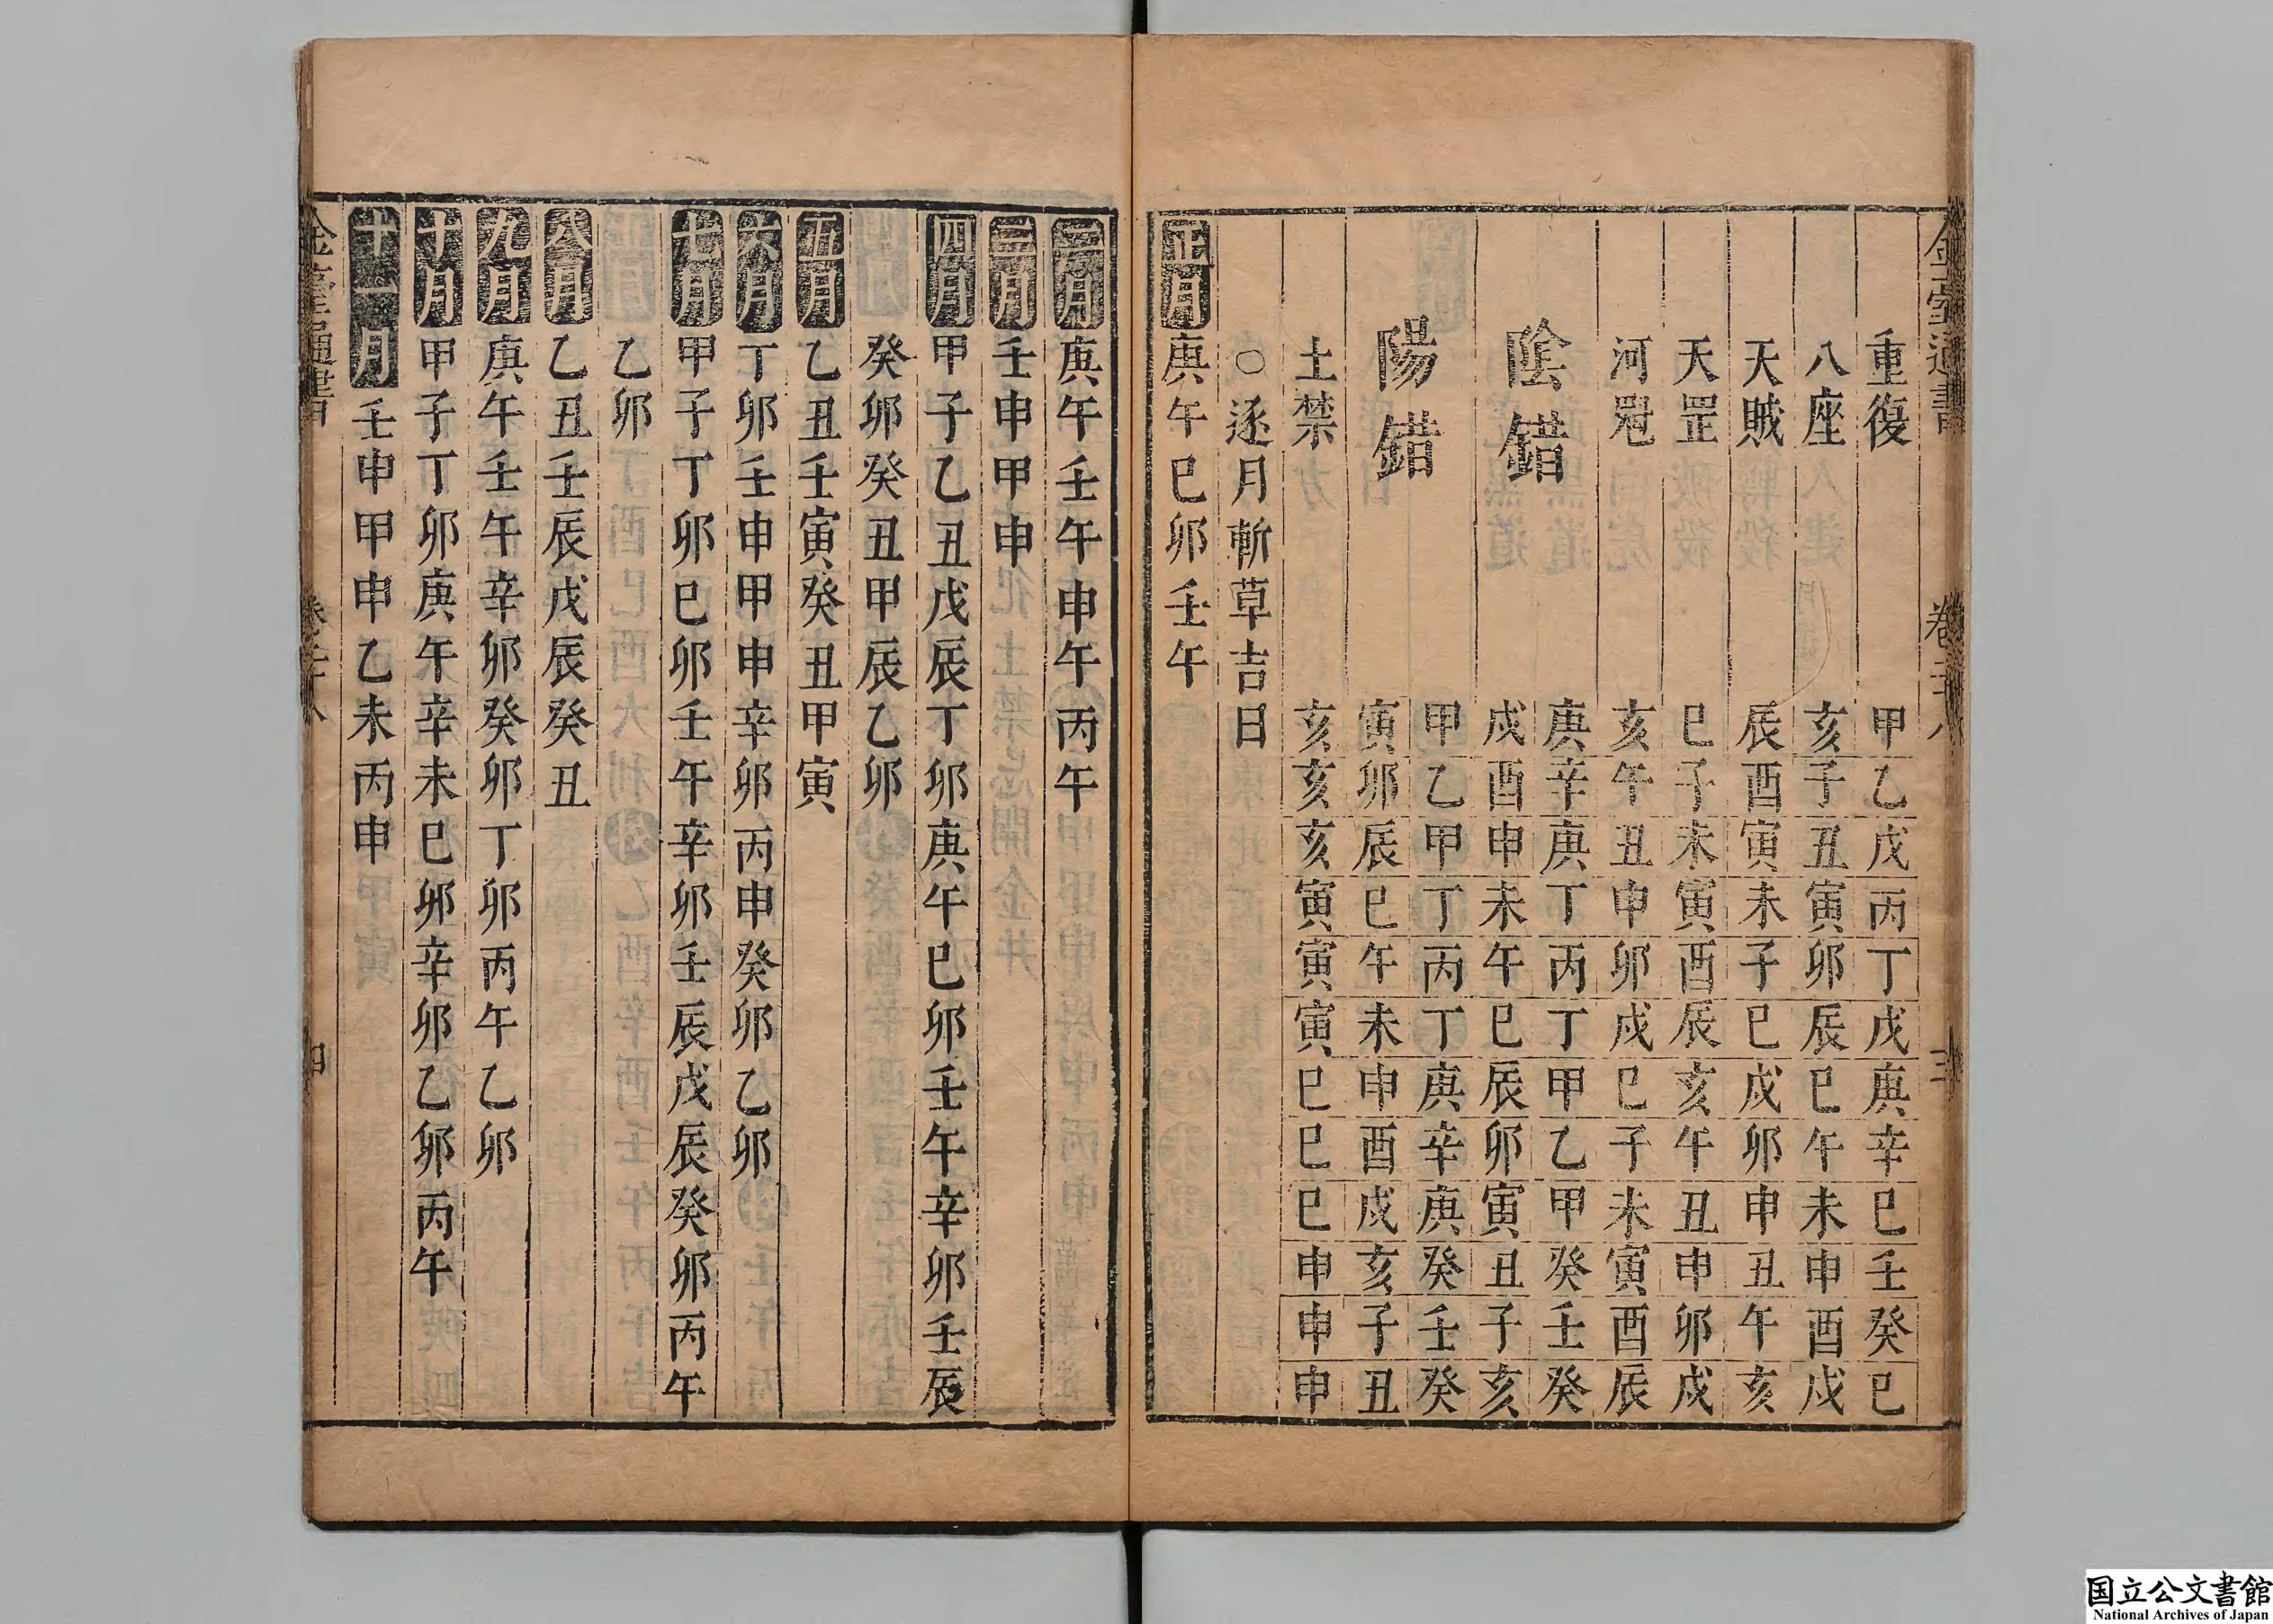 重復 甲乙戊丙丁戊庚辛巳壬癸巳
八座 亥子丑寅卯辰巳午未申酉戌
天賊 辰酉寅未子巳戌卯申丑午亥
天罡 巳子未寅酉辰亥午丑申卯戌
河魁 亥午丑申卯戌巳子未寅酉辰
陰錯 庚辛庚丁丙丁甲乙甲癸壬癸
戌酉申未午巳辰卯寅丑子亥
陽錯 甲乙甲丁丙丁庚辛庚癸壬癸
寅卯辰巳午未申酉戌亥子丑
土禁 亥亥亥寅寅寅巳巳巳申申申
○逐月斬草吉日
正月 庚午巳卯壬午
二月 庚午壬午甲申丙午
三月 壬申甲申
四月 甲子乙丑戊辰丁卯庚午巳卯壬午辛卯壬辰
癸卯癸丑甲辰乙卯
五月 乙丑壬寅癸丑甲寅
六月 丁卯壬申甲申辛卯丙申癸卯乙卯
七月 甲子丁卯巳卯壬午辛卯壬辰戊辰癸卯丙午
乙卯
八月 乙丑壬辰戊辰癸丑
九月 庚午壬午辛卯癸卯丁卯丙午乙卯
十月 甲子丁卯庚午辛未巳卯辛卯乙卯丙午
十一月 壬申甲申乙未丙申
国立公文書館
National Archives of Japan